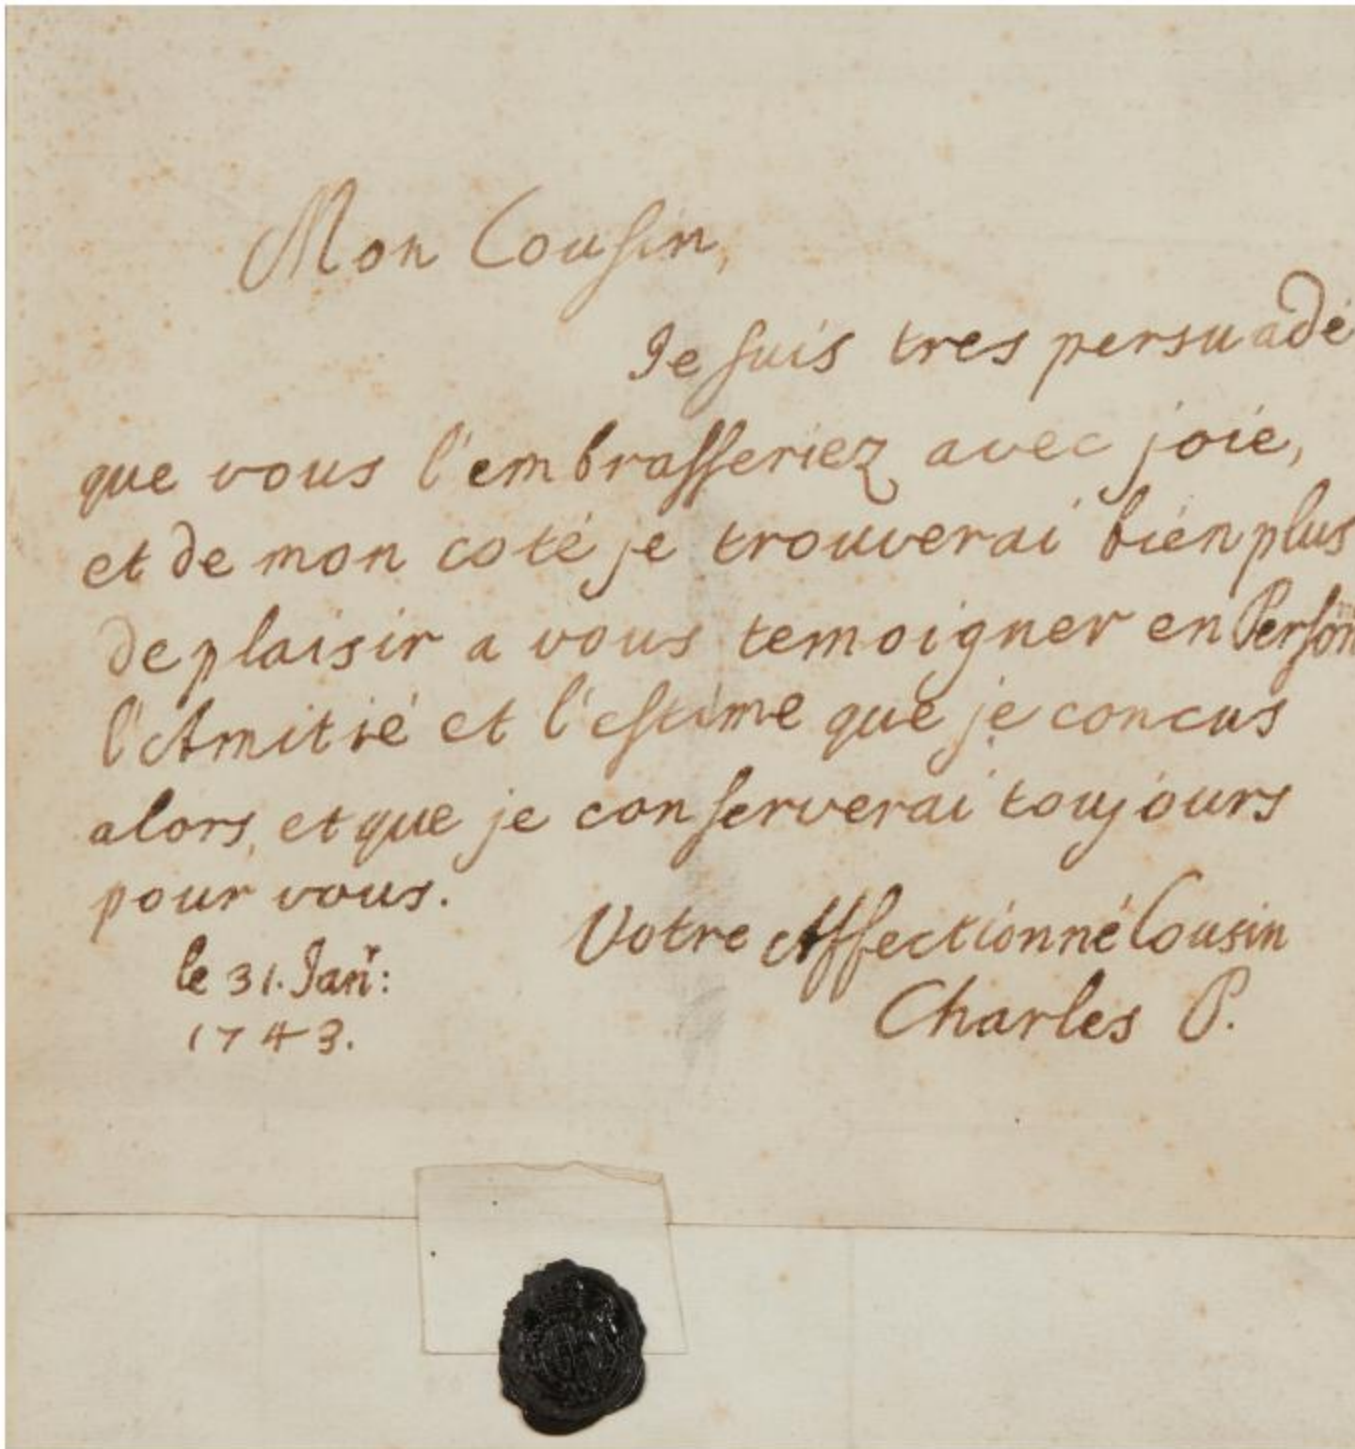 Mon Cousin,
Je suis tres persuadé
que vous l'embrasseriez avec joie,
et de mon coté je trouverai bien plus
de plaisir a vous temoigner en Person
l'Amitié et l'estime que je concus
alors, et que je conserverai toujours
pour vous.
Votre Affectionné Cousin
le 31. Janr:
Charles P.
1743.